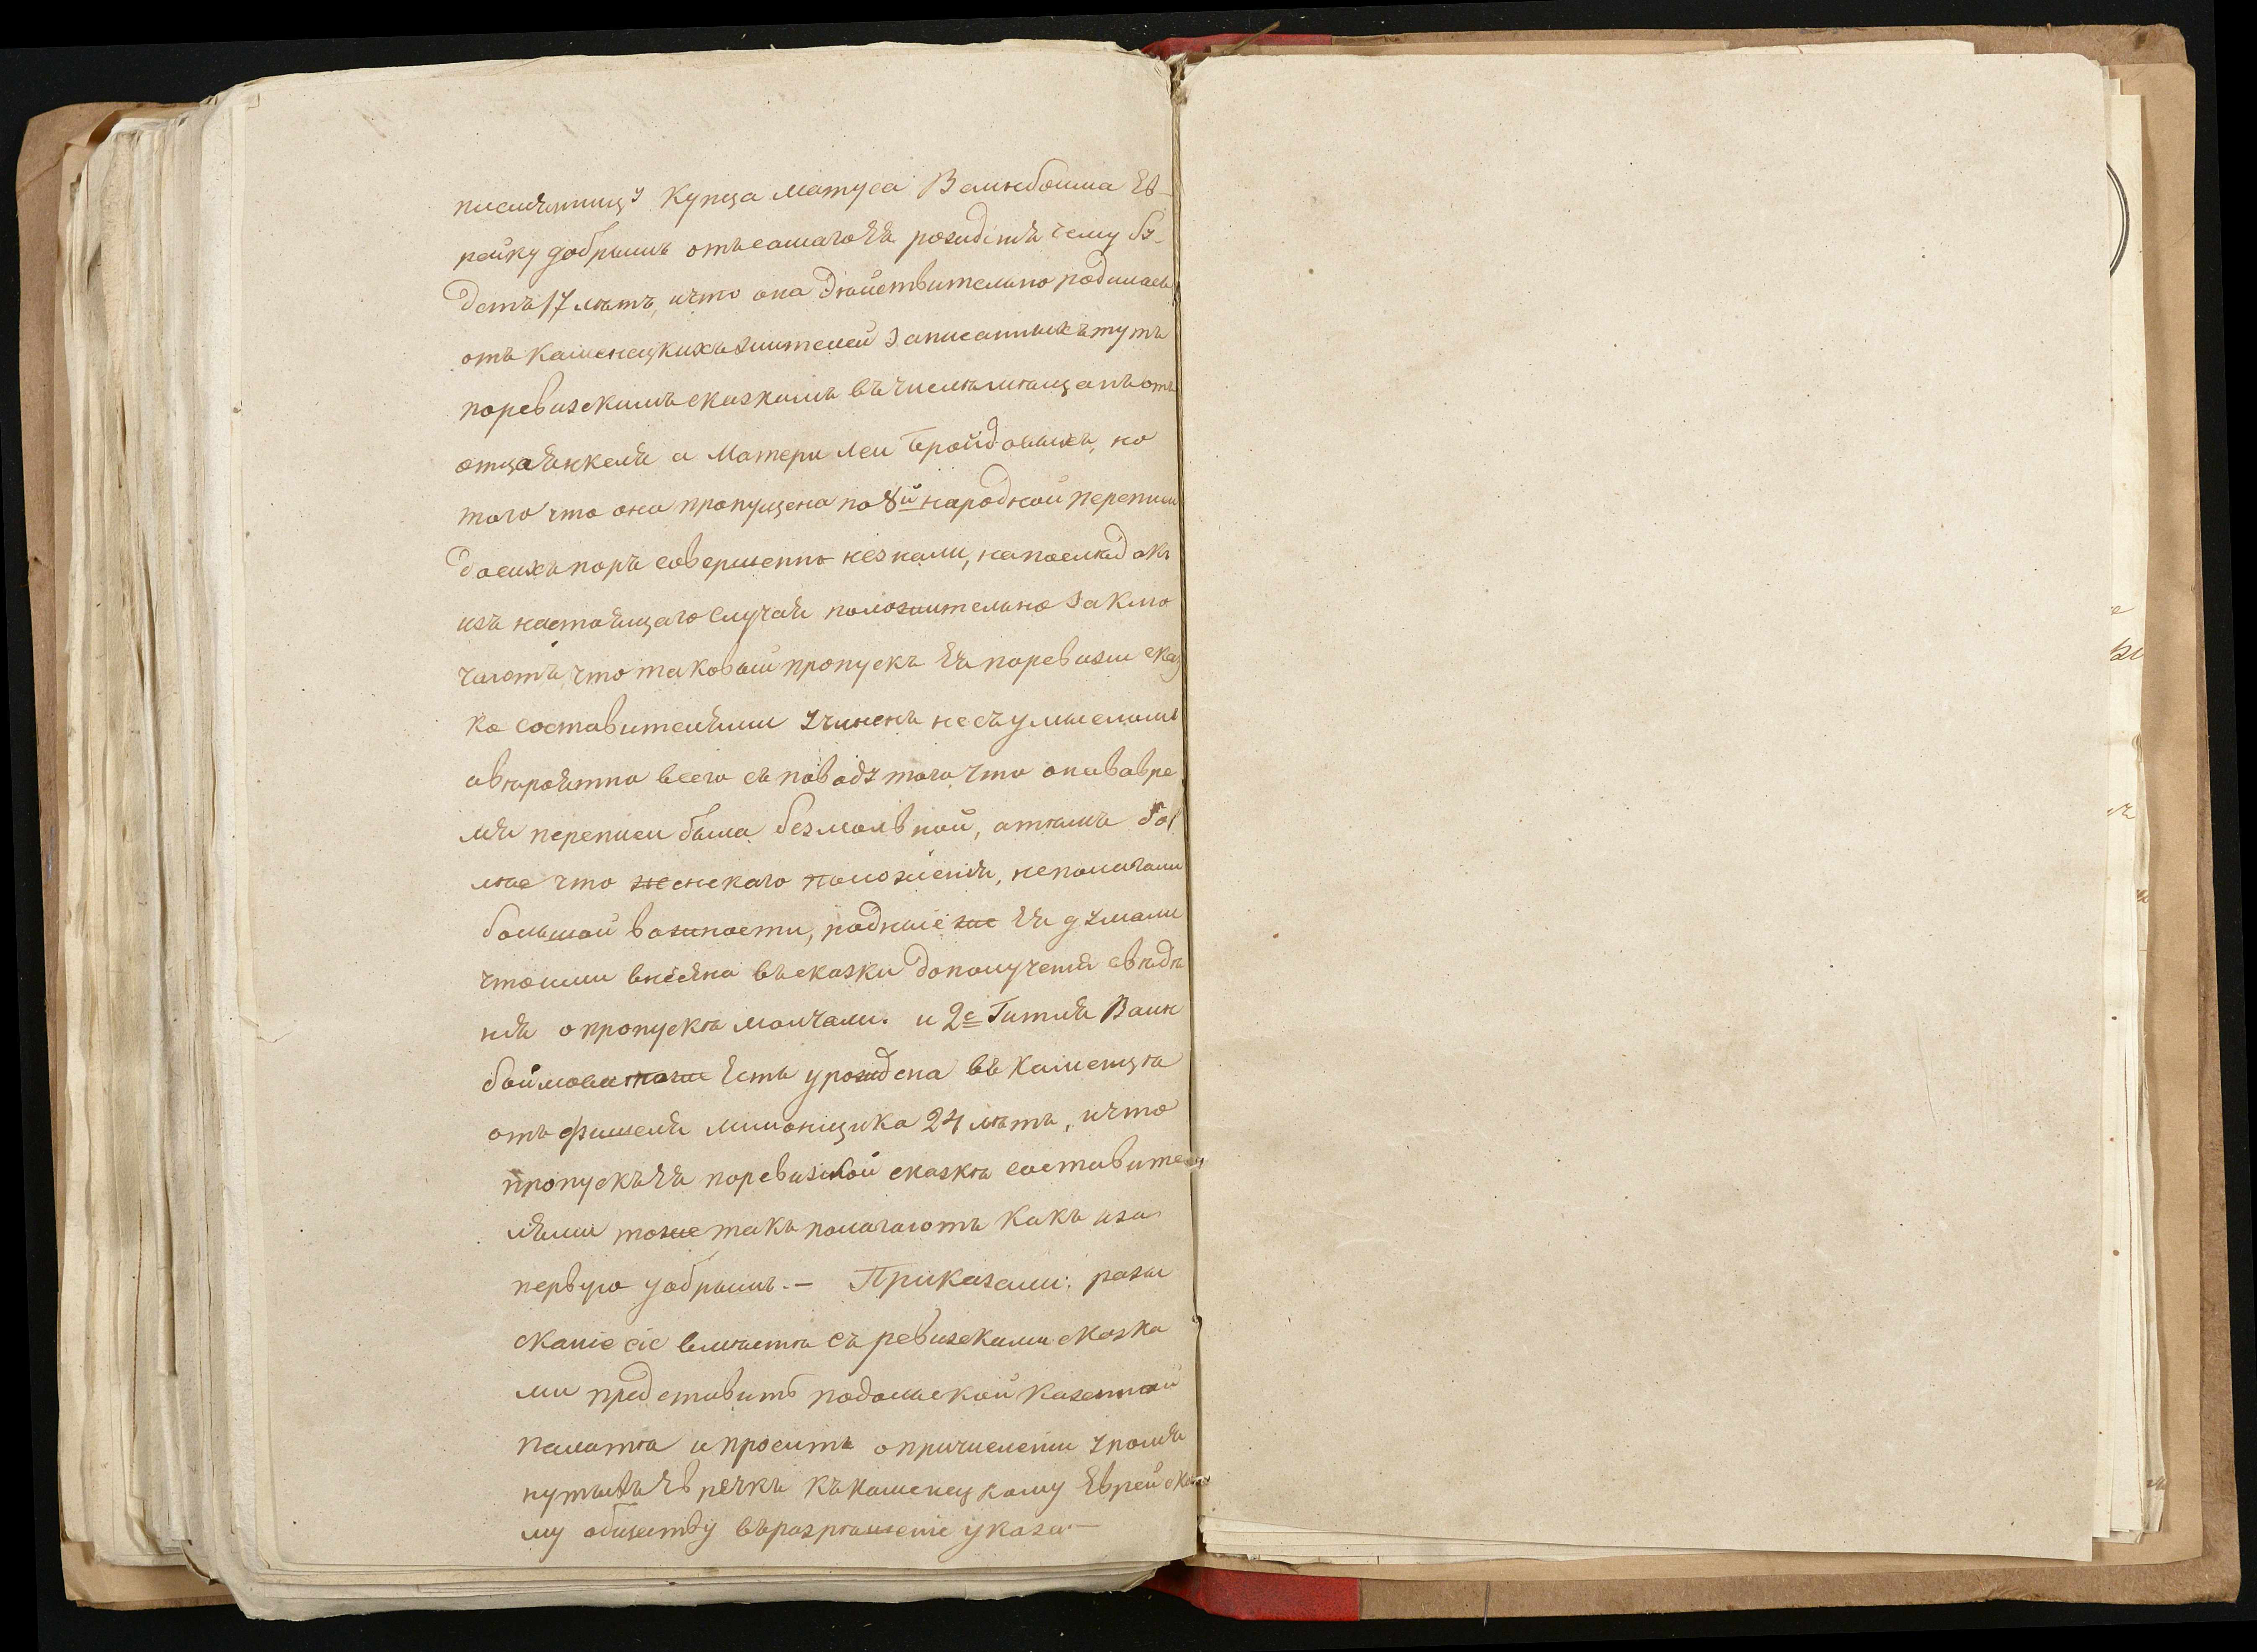 племянницу Купца Матуса Ваинбоима Ев-
рейку добрышъ отъ самаго Ея рожиденія сему бу-
детъ 17 лѣтъ, и что она дѣйствительно родилась
отъ Каменецкихъ жителей записанныхъ тутъ
поревизскимъ сказкамъ въ числѣ мѣщанъ отъ
отца Янкеля и Матери Леи Бройдовыхъ, но
того что она пропущена по 8й народной переписи
досихъ поръ совершенно незнали, напослѣдокъ
изъ настоящаго случая положительно заклю
чаютъ, что таковый пропускъ Ея поревизии сказ
ко составителями учиненъ несъумысломъ
авѣроятно всего съ поводу того что она вовре
мя переписи была безмолвной, атѣмъ бол
лѣе что женскаго положенія, неполагали
большой важности, родные же Ея думали
что ими внесена въ сказки дополученія свѣдѣ
нія о пропускѣ молчали. и 2е Гитля Ваин
боймова тоже Есть урождена въ Каменцѣ
отъ Фишеля Милонщика 24 лѣтъ, и что
пропускъ Ея поревизской сказкѣ составите
лями тоже такъ полагаютъ какъ иза
первую добрышъ. — Приказали: розы
сканіе сіе вмѣстѣ съ ревизскими сказка
ми представить подольской казенной
палатѣ и просить о причисленіи упомя
нутыхъ Евреекъ къ каменецкому Еврейско
му обществу въ разрѣшеніе указа —